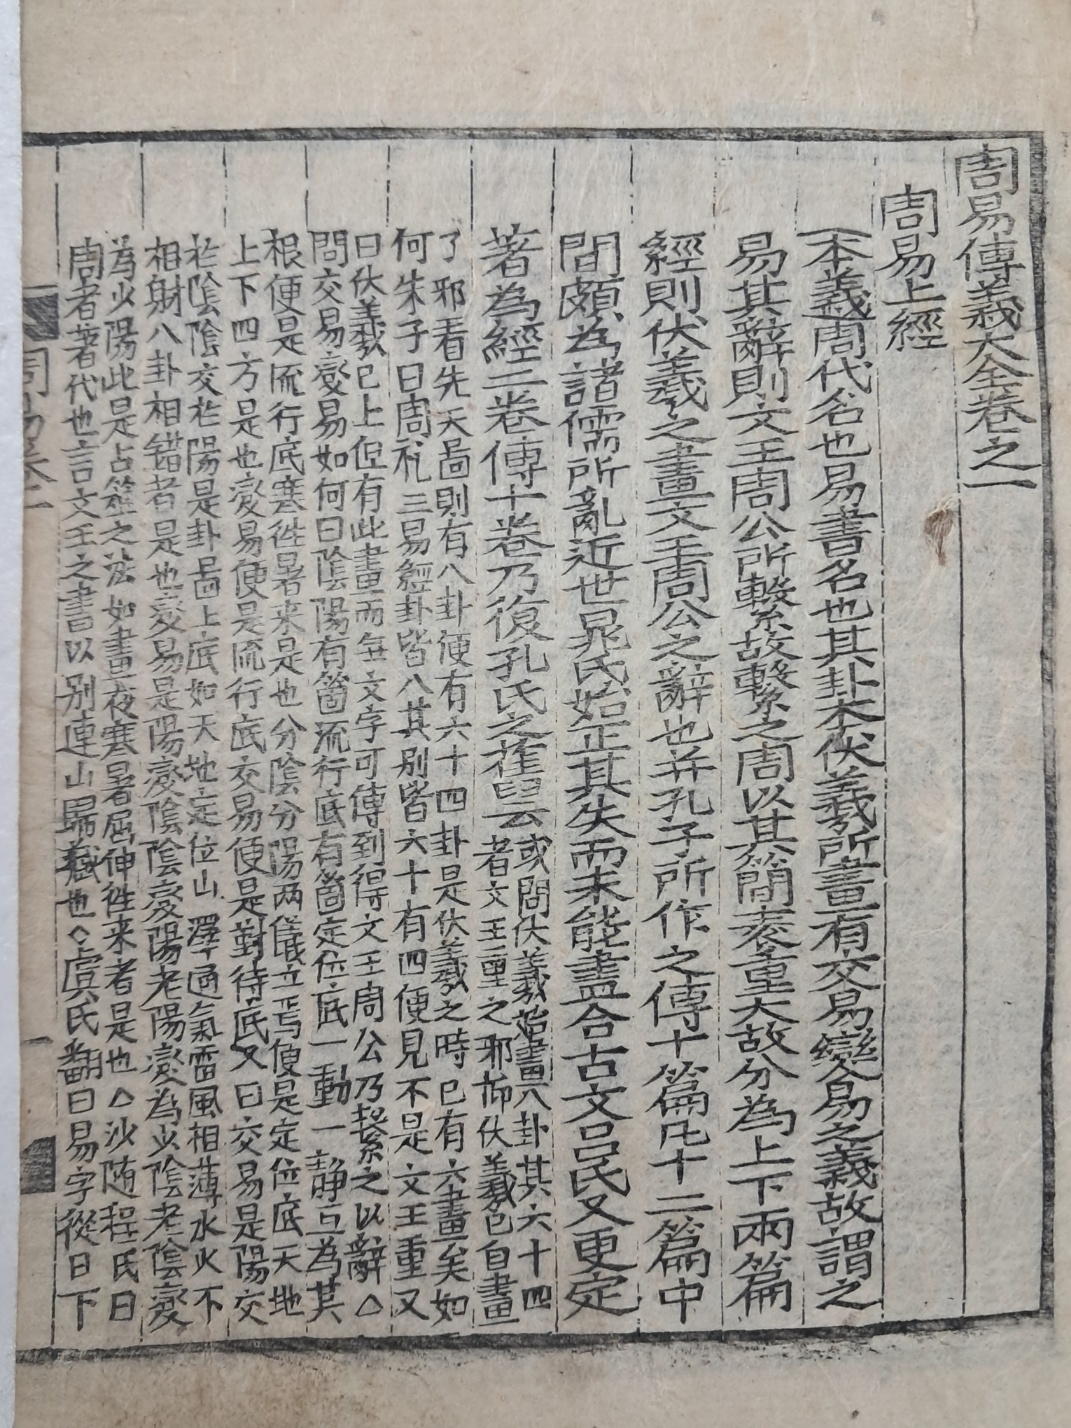 周易傳義大全卷之一
周易上經
本義周代名也易書名也其卦本伏羲所畫有交易變易之義故謂之
易其辭則文王周公所繫故繫之周以其簡袠重大故分為上下兩篇
經則伏羲之畫文王周公之辭也并孔子所作之傳十篇凡十二篇中
間頗為諸儒所亂近世晁氏始正其失而未能盡合古文呂氏又更定
著為經二卷傳十卷乃復孔氏之舊云
或問伏羲始畫八卦其六十四
者文王重之邪抑伏羲已自畫
了邪看先天啚則有八卦便有六十四卦是伏羲之時已有六畫矣如
何朱子曰周礼三易經卦皆八其別皆六十有四便見不是文王重又
曰伏羲已上但有此畫而無文字可傳到得文王周公乃繫之以辭△
問交易變易如何曰陰陽有箇流行底有箇定位底一動一靜互為其
根便是流行底寒徃暑来是也分陰分陽两儀立焉便是定位底天地
上下四方是也變易便是流行底交易便是對待底又曰交易是陽交
於陰陰交於陽是卦啚上底如天地定位山澤通氣雷風相薄水火不
相射八卦相錯者是也變易是陽變陰陰變陽老陽變為少陰老陰變
為少陽此是占筮之法如晝夜寒暑屈伸徃来者是也△沙随程氏曰
周者著代也言文王之書以別連山歸藏也◇虞氏翻曰易字從日下
周易卷一
一